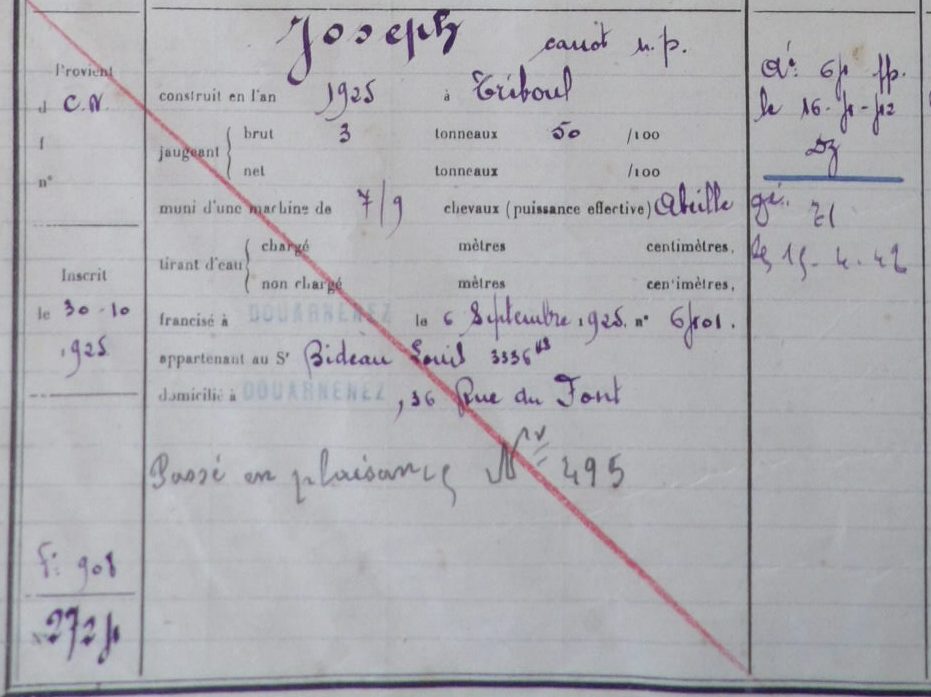 Provient
d C.N.
f
n°
Inscrit
le 30-10
1925
f: 908
Joseph canot n.p.
construit en l'an 1925 à Tréboul
jaugeant { brut 3 tonneaux 50 /100
net tonneaux /100
muni d'une machine de 7/9 chevaux (puissance effective) Abeille
tirant d'eau { chargé mètres centimètres,
non chargé mètres cen'imètres,
francisé à DOUARNENEZ le 6 Septembre 1925. n°
appartenant au Sr Bideau Louis 3336
domicilié à DOUARNENEZ, 36 Rue du Font
Passé en plaisance N° 495
Dz